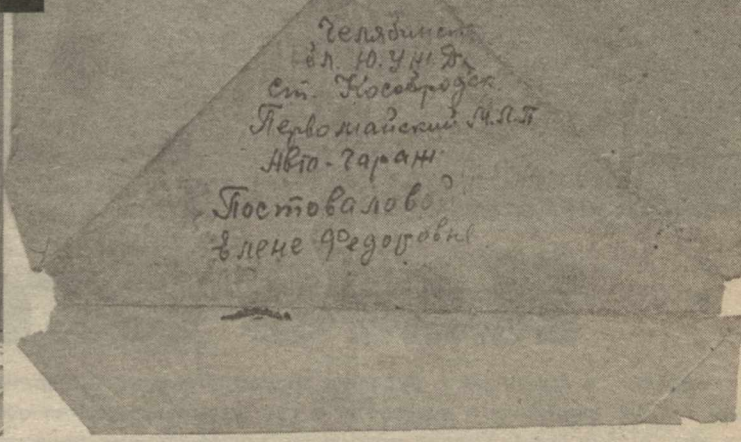 Челябинск
обл. Ю. У. Ж. Д.
ст. Кособродск
Первомайский М.Л.П
Авто-гараж
Постоваловой
Елене Федоровне